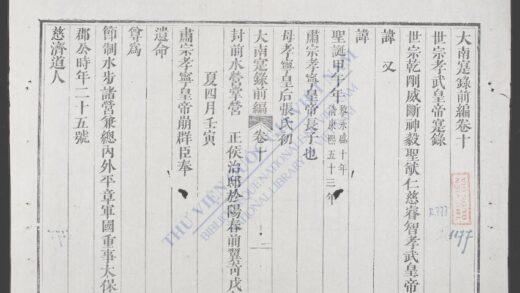 大南寔錄前編卷十
世宗孝武皇帝寔錄
世宗乾剛威斷神毅聖猷仁慈睿智孝武皇帝
諱
又
諱
聖誕甲午年
黎永盛十年
清康熙五十三年
肅宗孝寧皇帝長子也
母孝寧皇后張氏初
大南寔錄前編
卷十
一
封前水營掌營
正侯治邸於陽春前翼奇戊
夏四月壬寅
肅宗孝寧皇帝崩群臣奉
遺命
尊爲
節制水步諸營兼總內外平章軍國重事太保
郡公時年二十五號
慈濟道人
THƯ VIỆN QUỐC GIA VIỆT NAM
NATIONAL LIBRARY
R.777
1177